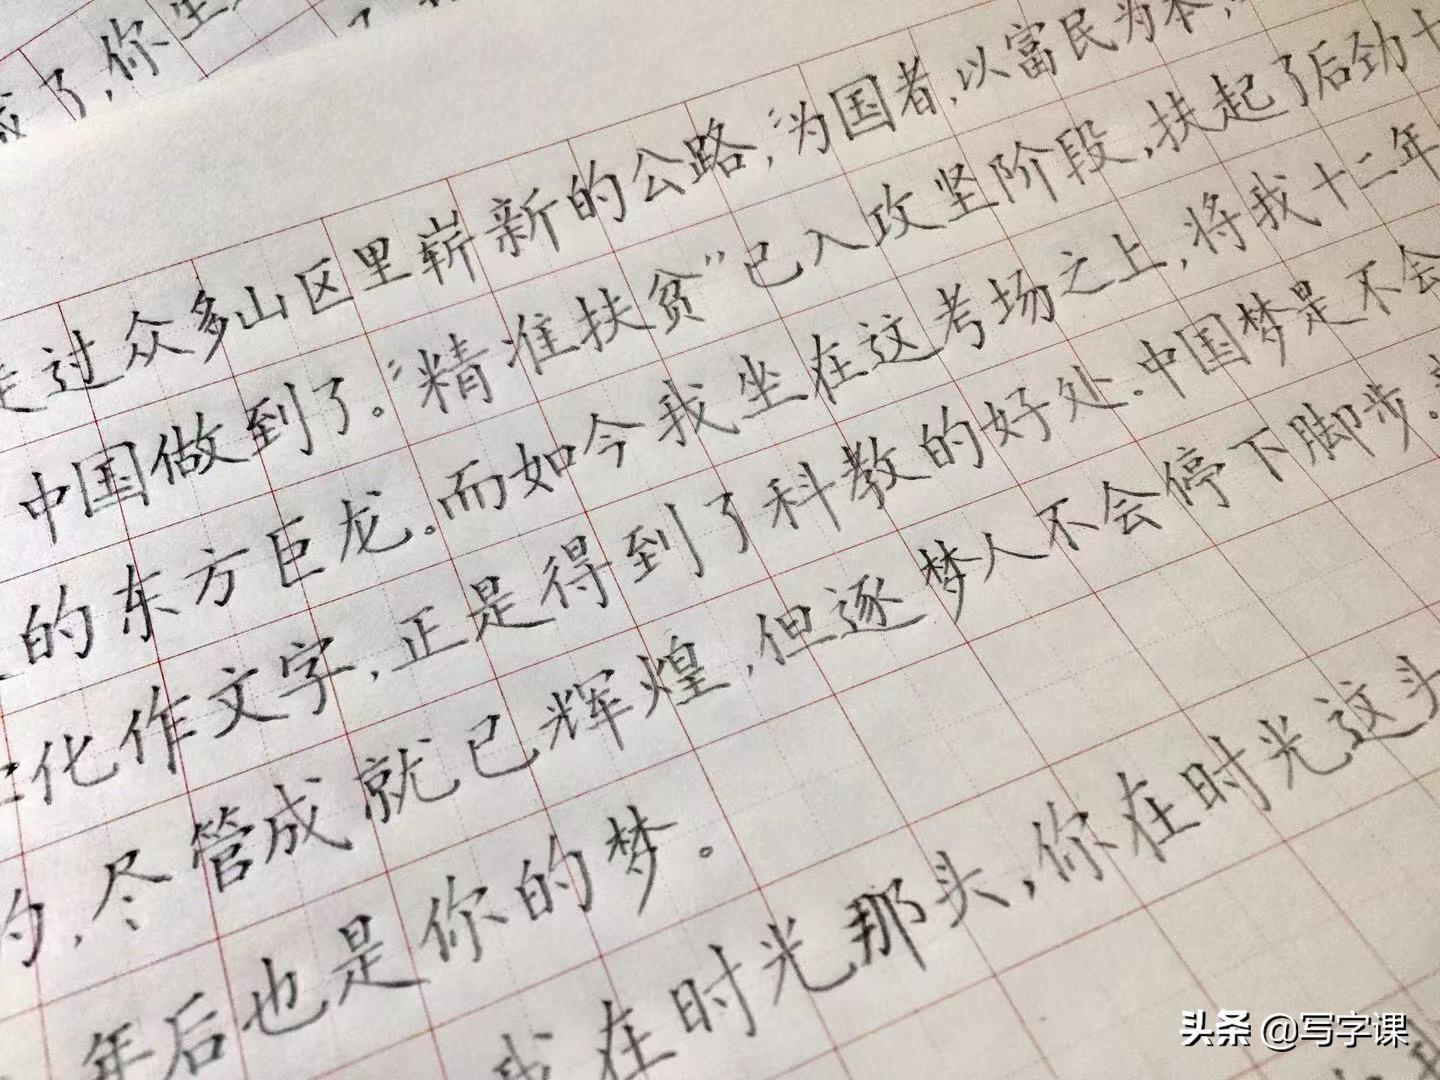 了，你生
走过众多山区里崭新的公路，“为国者，以富民为本，
中国做到了。“精准扶贫”已入攻坚阶段，扶起了后劲十
的东方巨龙。而如今我坐在这考场之上，将我十二年
化作文字，正是得到了科教的好处。中国梦是不会
的，尽管成就已辉煌，但逐梦人不会停下脚步。
年后也是你的梦。
我在时光那头，你在时光这头
头条 @写字课